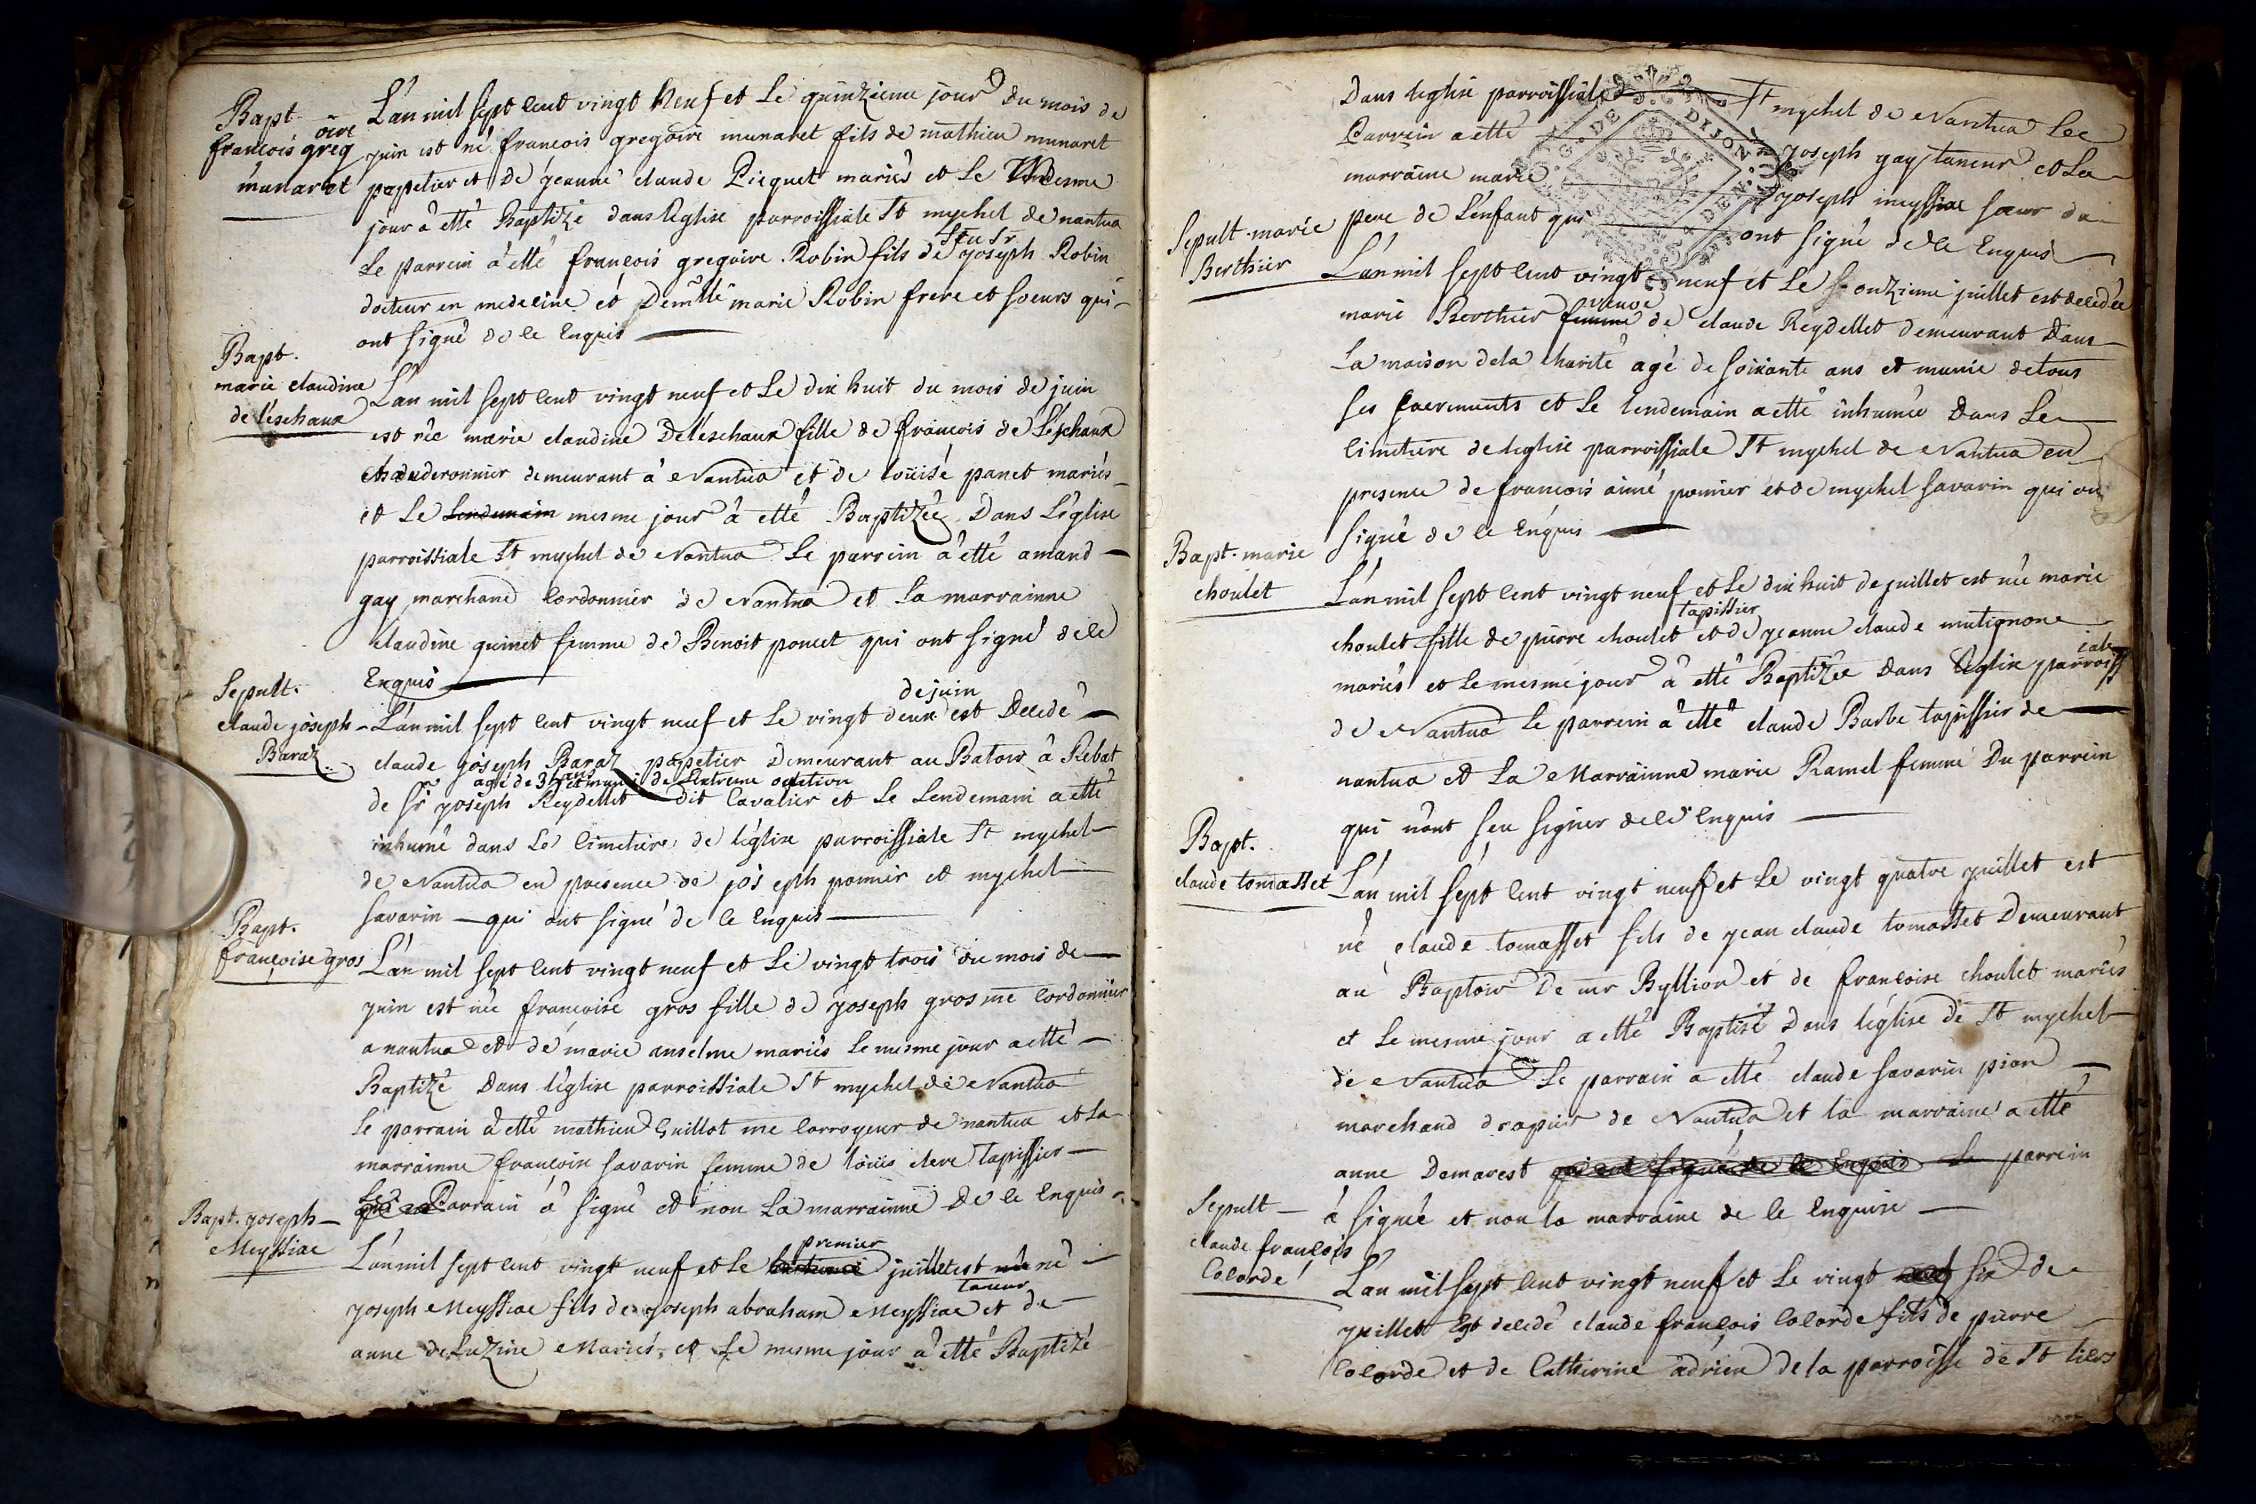 Bapt
françois greg
oire
munaret
L'an mil sept cent vingt neuf et le quinzieme jour du mois de
juin est né francois gregoire munaret fils de mathieu munaret
papetier et de jeanne claude Picquet mariés et le mesme
jour à etté Baptizé dans l'eglise parroissiale St mychel de nantua
Le parrein à etté françois gregoire Robin fils de feu sr joseph Robin
docteur en medecine et demlle marie Robin frere et soeurs qui
ont signé de ce enquis
Bapt.
marie claudine
de léschaux
L'an mil sept cent vingt neuf et le dix huit du mois de juin
est née marie claudine De léschaux fille de francois de Léschaux
chauderonnier demeurant à Nantua et de loüise panet mariés
et le lendemain mesme jour à etté Baptizée Dans L'eglise
parroissiale St mychel de Nantua Le parrein à etté amand
gay marchand Cordonnier de Nantua et la marrainne
claudine guinet femme de Benoit poncet qui ont signé de ce
Enquis
Sepult.
claude joseph
Baraz
L'an mil sept cent vingt neuf et le vingt deux de juin est Decedé
claude joseph Baraz papetier Demeurant au Batoir à Rebat
agé de 35 ans et muni de L'extreme onction
de Sr joseph Reydellet dit Cavalier et le Lendemain a etté
inhumé dans le Cimetiere de l'eglise parroissiale St mychel
de Nantua en presence de joseph pomier et mychel
Savarin qui ont signé de ce Enquis
Bapt.
françoise gros
L'an mil sept cent vingt neuf et le vingt trois du mois de
juin est née francoise gros fille de joseph gros me Cordonnier
a nantua et de marie anselme mariés le mesme jour a etté
Baptizé Dans l'eglise parroissiale St mychel de Nantua
Le parrain à etté mathieu Guillot me Corroyeur de nantua et la
marrainne françoise Savarin femme de loüis clerc tapissier
Le Parrain à signé et non La marrainne De ce Enquis
Bapt. joseph
Meyssiac
L'an mil sept cent vingt neuf et le premier juillet est né
taneur
joseph Meyssiac fils de joseph abraham Meyssiac et de
anne de Luzine Mariés, et le mesme jour à etté Baptizé
Dans l'eglise parroissiale St mychel de Nantua Le
Parrein a etté joseph gay taneur et La
marraine marie joseph meyssiac soeur du
pere de L'enfant qui ont signé de ce Enquis
Sepult. marie
Berthier
L'an mil sept cent vingt neuf et le onzieme juillet est decedée
marie Berthier femme veuve de claude Reydellet demeurant Dans
La maison de la charité agé de soixante ans et munie de tous
ses sacrements et le lendemain a etté inhumée Dans Le
Cimetiere de l'eglise parroissiale St mychel de Nantua en
presence de francois aimé pomier et de mychel Savarin qui on
signé de ce Enquis
Bapt. marie
choulet
L'an mil sept cent vingt neuf et le dix huit de juillet est née marie
choulet fille de pierre choulet tapissier et de jeanne claude mutignone
mariés et le mesme jour à etté Baptizée Dans L'eglise parroissiale
de Nantua Le parrein à etté claude Barbe tapissier de
nantua et La Marrainne marie Ramel femme Du parrein
qui n'ont seu signer de ce enquis
Bapt.
claude tomasset
L'an mil sept cent vingt neuf et le vingt quatre juillet est
né claude tomasset fils de jean claude tomasset Demeurant
au Baptoir De mr Byllion et de francoise choulet mariés
et le mesme jour a etté Baptisé Dans l'église de St mychel
de Nantua Le parrain a etté claude Savarin pion
marchand drapier de Nantua et la marraine a etté
anne Demarest qui ont signé de ce Enquis Le parrein
à signée et non la marraine de ce Enquise
Sepult
claude françois
Colorde
L'an mil sept cent vingt neuf et le vingt six de
juillet Est decedé claude françois Colorde fils de pierre
Colorde et de Catherine adrien de la parroisse de St
G. DE DIJON